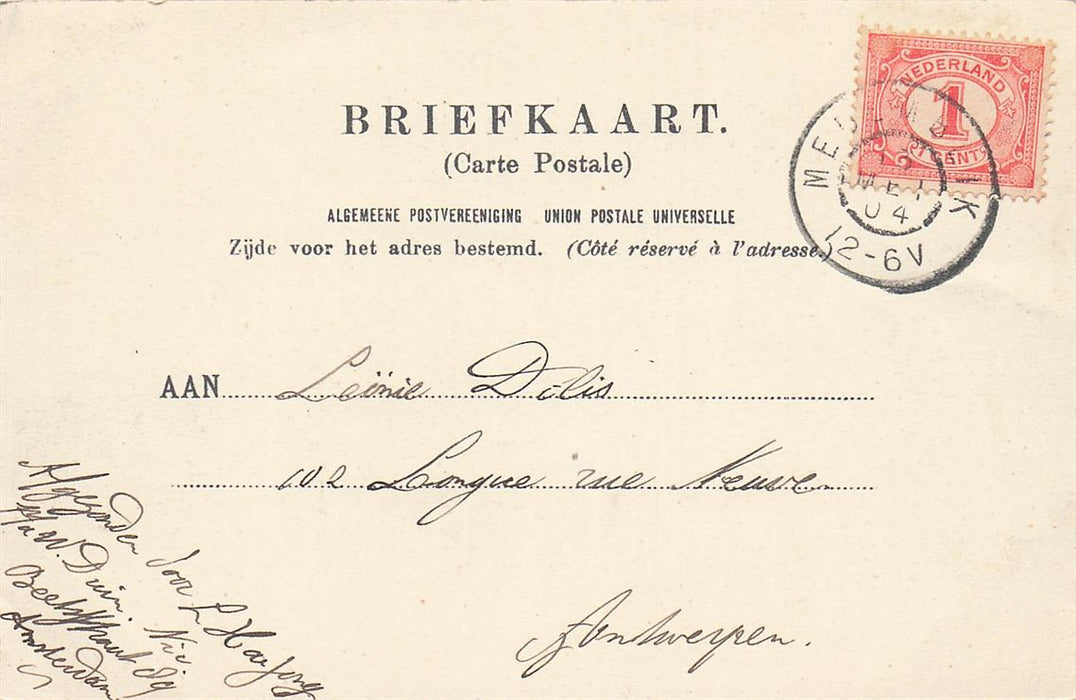 BRIEFKAART.
(Carte Postale)
ALGEMEENE POSTVEREENIGING UNION POSTALE UNIVERSELLE
Zijde voor het adres bestemd. (Côté réservé à l'adresse.)
NEDERLAND
1
CENT
MEI
04
12-6V
AAN Leönie Dolis
102 Longue rue Neuve
Antwerpen.
Afgezonden door L
p/a W. Duin.
89
Amsterdam